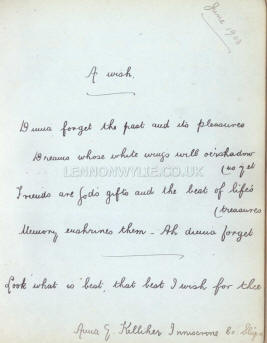 June 1908
A wish.
Dinna forget the past and its pleasures
Dreams whose white wings will o'ershadow
(us yet
Friends are God's gifts and the best of life's
(treasures
Memory enshrines them - Ah dinna forget
LENNONWYLIE.CO.UK
Look what is best, that best I wish for thee
Anna G. Kelliher Inniscrone Co Sligo